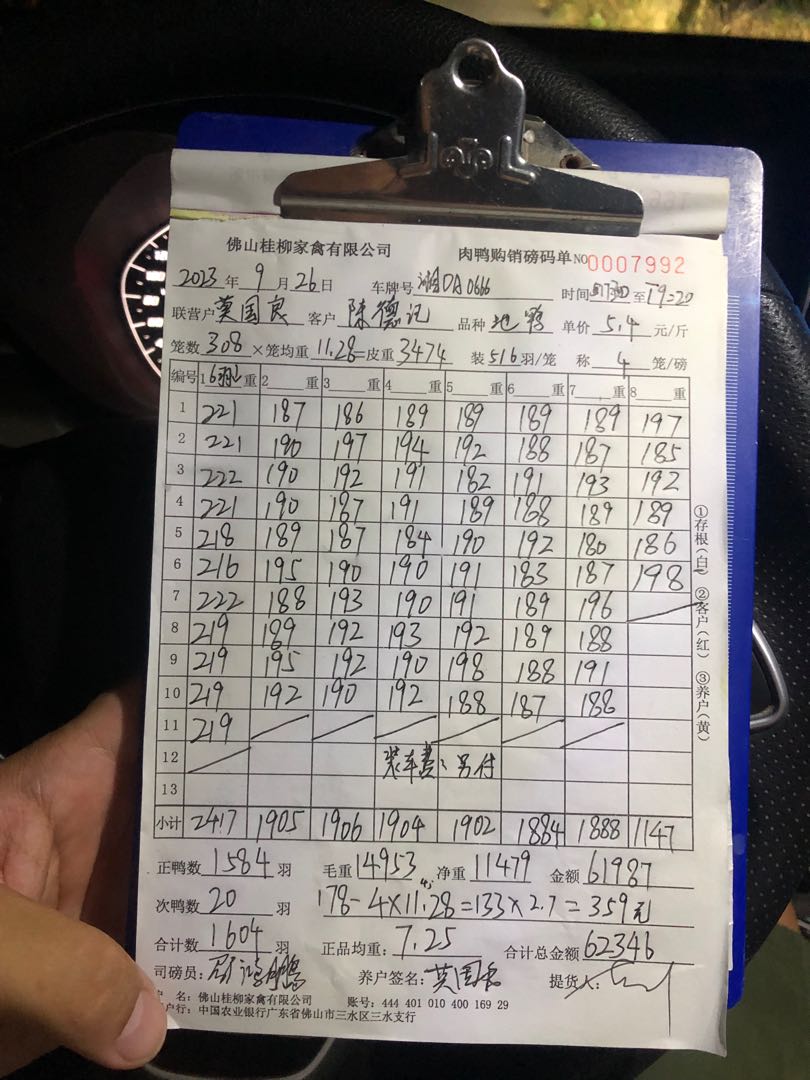 佛山桂柳家禽有限公司 肉鸭购销磅码单 NO 0007992
2023年9月26日 车牌号 湘DA0666 时间 至 T9=20
联营户 莫国良 客户 陈德记 品种 地鸭 单价 5.4 元/斤
笼数 308 ×笼均重 11.28 =皮重 3474 装 516 羽/笼 称 4 笼/磅
编号 1 重 2 重 3 重 4 重 5 重 6 重 7 重 8 重
1 221 187 186 189 189 189 189 197
2 221 190 197 194 192 188 187 185
3 222 190 192 191 182 191 193 192
4 221 190 187 191 189 188 189 189
5 218 189 187 184 190 192 180 186
6 216 195 190 190 191 183 187 198
7 222 188 193 190 191 189 196
8 219 189 192 193 192 189 188
9 219 195 192 190 198 188 191
10 219 192 190 192 188 187 188
11 219
12 装车费:另付
13
小计 2417 1905 1906 1904 1902 1884 1888 1147
正鸭数 1584 羽 毛重 14953 净重 11479 金额 61987
次鸭数 20 羽 178-4×11.28=133×2.7=359元
45
合计数 1604 羽 正品均重: 7.25 合计总金额 62346
司磅员: 养户签名: 莫国良 提货人:
名: 佛山桂柳家禽有限公司 账号: 444 401 010 400 169 29
户行: 中国农业银行广东省佛山市三水区三水支行
①存根(白) ②客户(红) ③养户(黄)